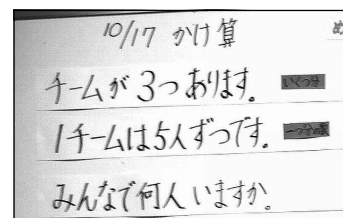 10/17 かけ算
め
チームが3つあります。 いくつ分
1チームは5人ずつです。 一つ分の数
みんなで何人いますか。